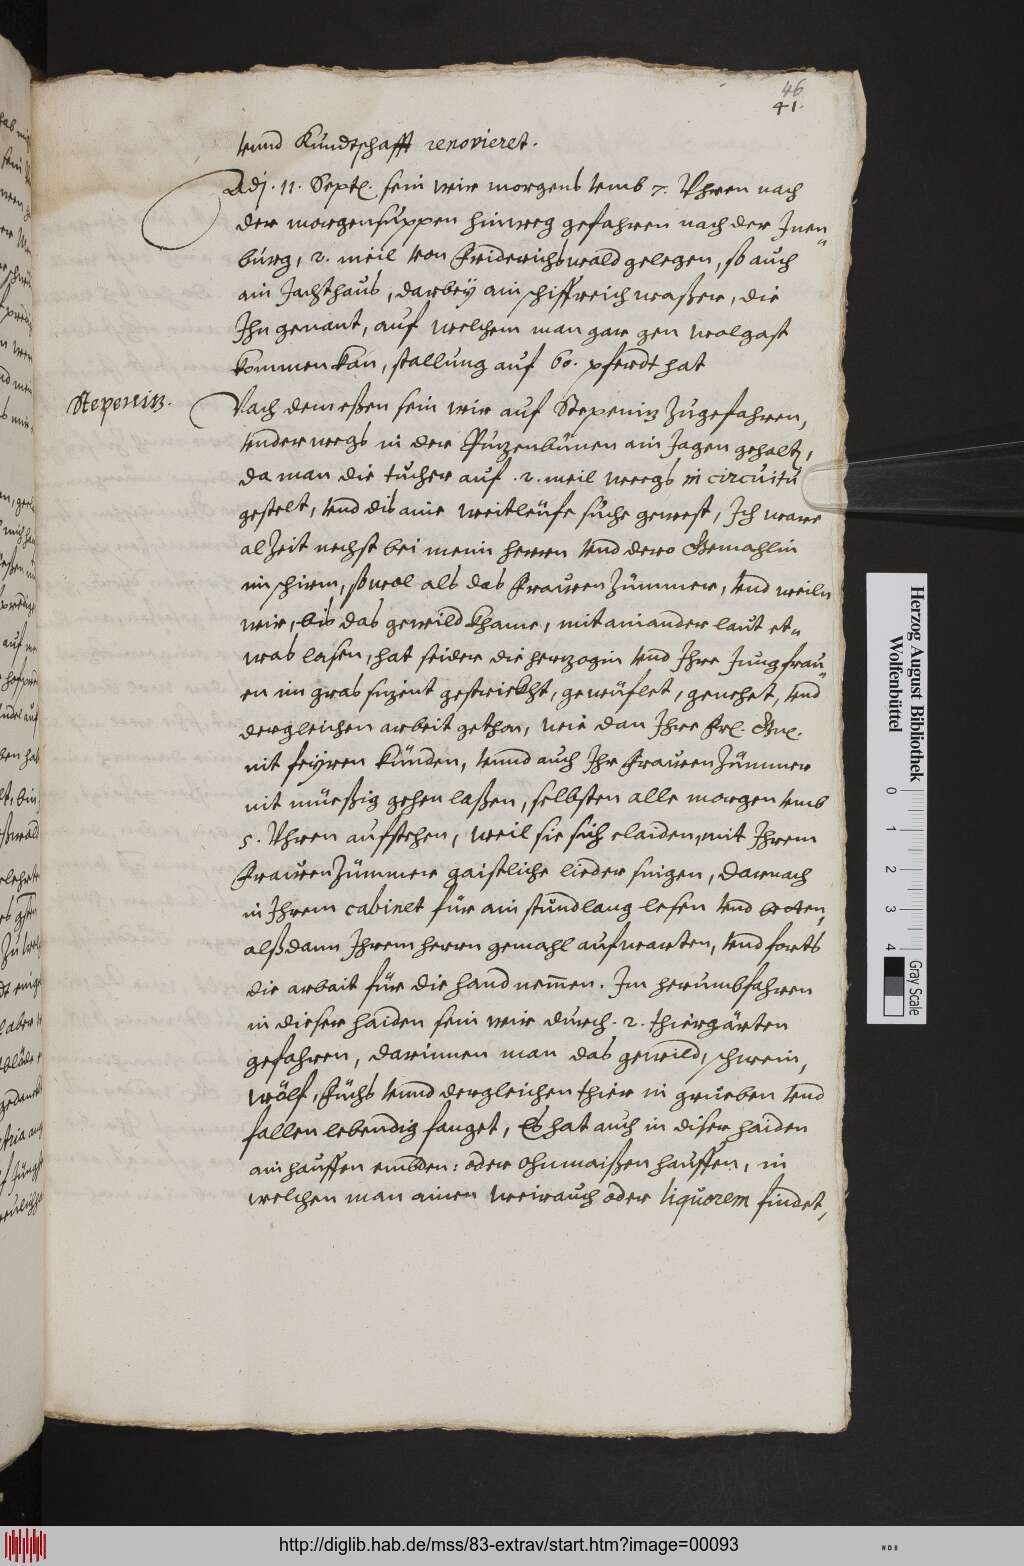 46
41.
vnnd Kundtschafft renovieret.
Adj. 11. Septe. sein wir morgens vmb 7. Vhren nach
der morgensuppen hinweg gefahren nach der Jnen„
burg, 2. meil von Friderichswald gelegen, so auch
ain Jachthaus, darbey ain schiffreich waßer, die
Ihn genant, auf welchem man gar gen Wolgast
kommen kan, stallung auf 60. pferdt hat
Stepenitz.
Nach dem eßen sein wir auf Stepenitz zugefahren,
vnderwegs in der Putzenbünen ain Jagen gehalten,
da man die tücher auf .2. meil weegs in circuitu
gestelt, vnd dis aine weitleüfe sache gewest, Ich ware
alzeit nechst bei meim herrn vnd dero Gemahlin
im schirm, sowol als das Frauenzümmer, vnd weiln
wir, bis das gewild khame, mit ainander laut et„
was lasen, hat seider die herzogin vnd Ihre Jungfrau„
en im gras sitzent gestrickht, gewüflet, genehet, vnd
dergleichen arbeit gethon, wie dan Ihre Frl. Gn.
nit feyren künden, vnnd auch Ihr Frauenzümmer
nit müeßig gehen laßen, selbsten alle morgen vmb
5. Vhren aufstehen, weil sie sich claiden, mit Ihrem
Frauenzümmer gaistliche lieder singen, darnach
in Ihrem cabinet für ain stund lang lesen vnd beeten,
alßdann Ihrem herrn gemahl aufwarten, vnd forts
die arbait für die hand nemen. Im herumbfahren
in dieser haiden sein wir durch .2. thiergärten
gefahren, darinnen man das gewild, schwein,
wölf, Füchs vnnd dergleichen thier in grueben vnd
fallen lebendig fanget, Es hat auch in diser haiden
ain hauffen embden: oder ohnmaißen hauffen, in
welchen man ainen weirauch oder liquorem findet,
Herzog August Bibliothek
Wolfenbüttel
0 1 2 3 4
Gray Scale
http://diglib.hab.de/mss/83-extrav/start.htm?image=00093